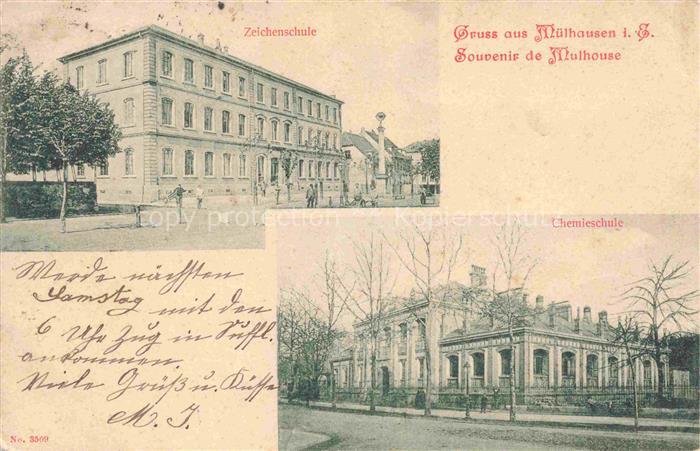 Zeichenschule
Gruss aus Mülhausen i. E.
Souvenir de Mulhouse
copy protection · Kopierschutz
Chemieschule
Werde nächsten
Samstag mit den
6 Uhr Zug in Sulfl.
ankommen
Viele Grüß u. Küsse
M. J.
No. 3509